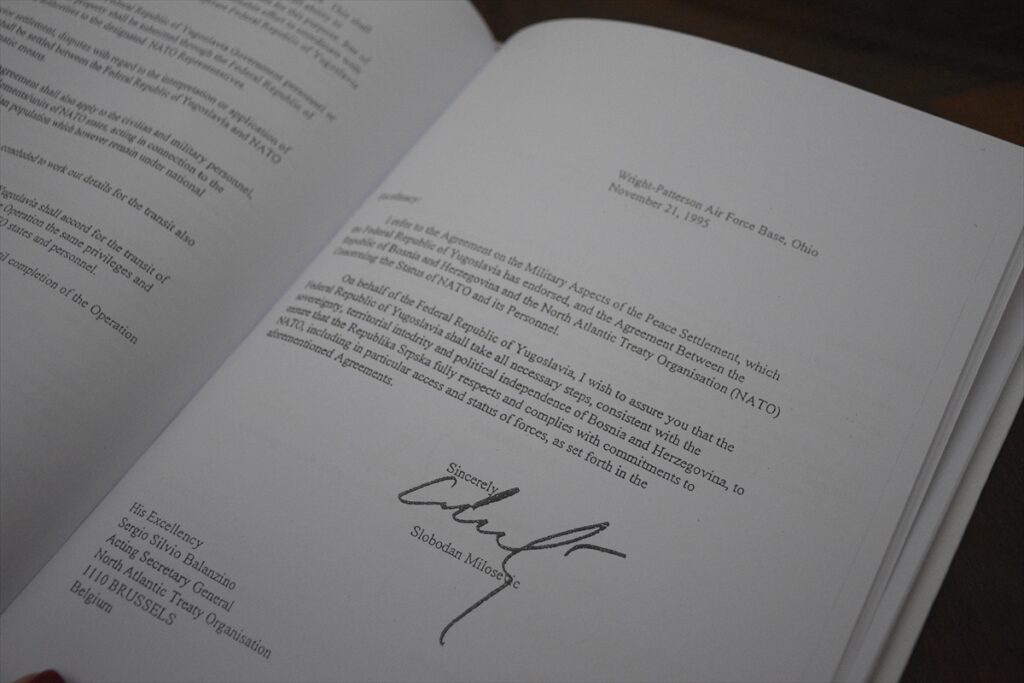 Federal Republic of Yugoslavia Government personnel or
property shall be submitted through the Federal Republic of
authorities to the designated NATO Representatives.
settlement, disputes with regard to the interpretation or application of
shall be settled between the Federal Republic of Yugoslavia and NATO
means.
Agreement shall also apply to the civilian and military personnel,
of NATO states, acting in connection to the
population which however remain under national
concluded to work out details for the transit also
Yugoslavia shall accord for the transit of
Operation the same privileges and
states and personnel.
completion of the Operation
Wright-Patterson Air Force Base, Ohio
November 21, 1995
Excellency:
I refer to the Agreement on the Military Aspects of the Peace Settlement, which
the Federal Republic of Yugoslavia has endorsed, and the Agreement Between the
Republic of Bosnia and Herzegovina and the North Atlantic Treaty Organisation (NATO)
Concerning the Status of NATO and its Personnel.
On behalf of the Federal Republic of Yugoslavia, I wish to assure you that the
Federal Republic of Yugoslavia shall take all necessary steps, consistent with the
sovereignty, territorial intedrity and political independence of Bosnia and Herzegovina, to
ensure that the Republika Srpska fully respects and complies with commitments to
NATO, including in particular access and status of forces, as set forth in the
aforementioned Agreements.
Sincerely
Slobodan Milosevic
His Excellency
Sergio Silvio Balanzino
Acting Secretary General
North Atlantic Treaty Organisation
1110 BRUSSELS
Belgium